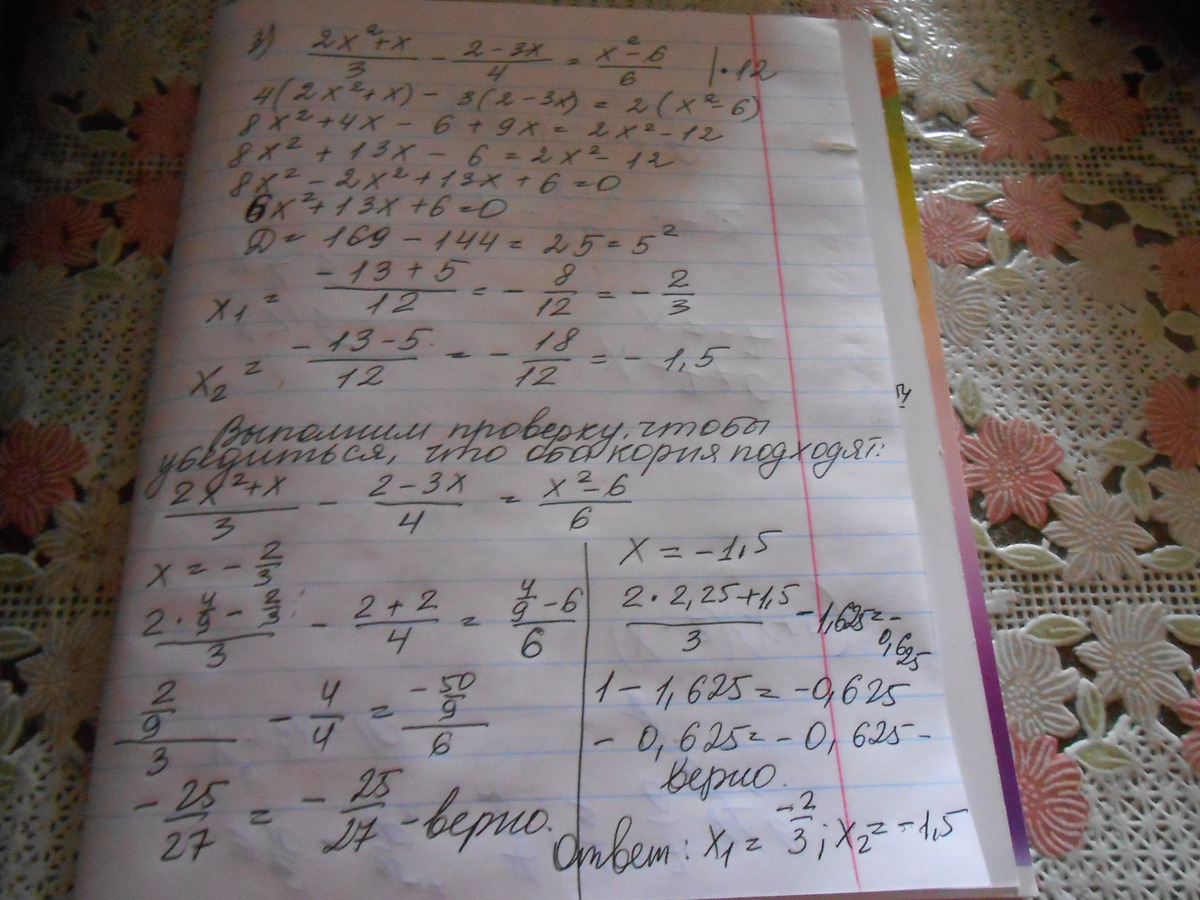 3) (2x²+x)/3 - (2-3x)/4 = (x²-6)/6 |·12
4(2x²+x) - 3(2-3x) = 2(x²-6)
8x²+4x - 6 + 9x = 2x²-12
8x² + 13x - 6 = 2x² - 12
8x² - 2x² + 13x + 6 = 0
6x² + 13x + 6 = 0
D = 169 - 144 = 25 = 5²
x₁ = (-13 + 5)/12 = - 8/12 = - 2/3
x₂ = (-13 - 5)/12 = - 18/12 = - 1,5
Выполним проверку, чтобы
убедиться, что оба корня подходят:
(2x²+x)/3 - (2-3x)/4 = (x²-6)/6
x = - 2/3
(2 · 4/9 - 2/3)/3 - (2+2)/4 = (4/9 - 6)/6
(2/9)/3 - 4/4 = (-50/9)/6
- 25/27 = - 25/27 - верно.
x = -1,5
(2 · 2,25+1,5)/3 - 1,625 = -0,625
1 - 1,625 = -0,625
- 0,625 = - 0,625 -
верно.
Ответ: x₁ = -2/3; x₂ = -1,5